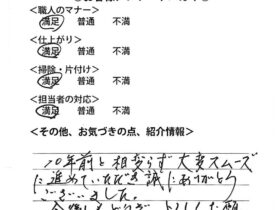 <職人のマナー>
満足 普通 不満
<仕上がり>
満足 普通 不満
<掃除・片付け>
満足 普通 不満
<担当者の対応>
満足 普通 不満
<その他、お気づきの点、紹介情報>
10年前と相変らず大変スムーズ
に進めていただき誠にありがとう
ございました。